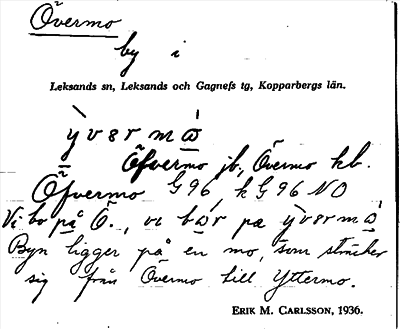 Övermo
by i
Leksands sn, Leksands och Gagnefs tg, Kopparbergs län.
ỳvərmɷ̀
Öfvermo jb., Övermo kb.
Öfvermo G 96, k G 96 NO
Vi bo på Ö., vi bor pa ỳvərmɷ̀
Byn ligger på en mo, som sträcker
sig från Övermo till Yttermo.
ERIK M. CARLSSON, 1936.